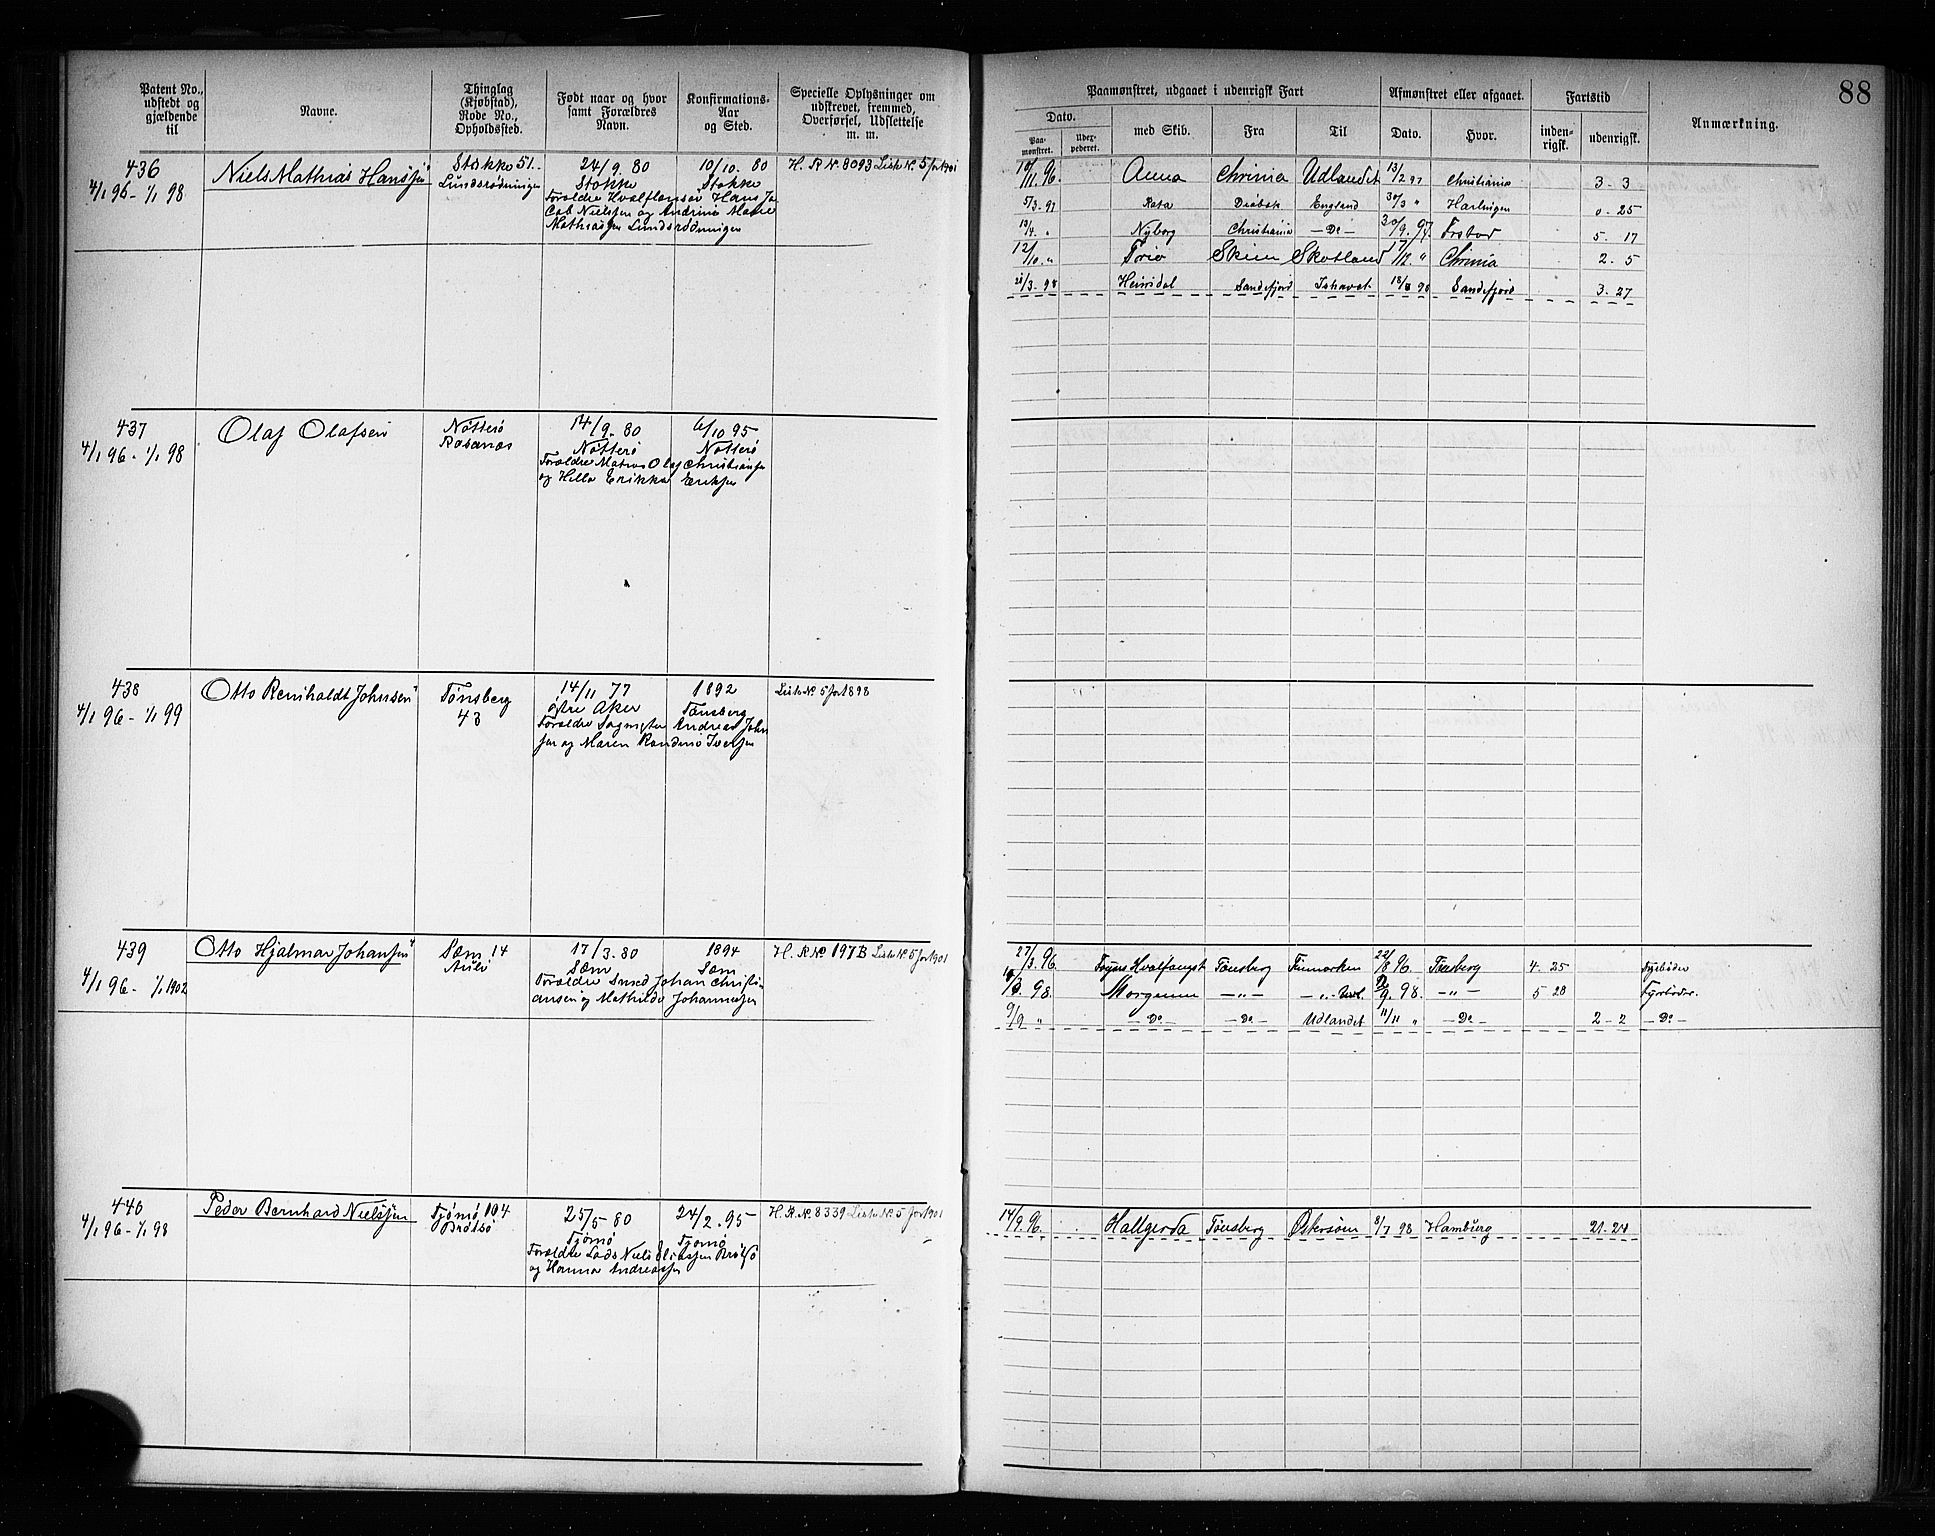 88
Patent No., udstedt og gjældende til
Navne.
Thinglag (Kjøbstad), Rode No., Opholdssted.
Født naar og hvor samt Forældres Navn.
Konfirmations-Aar og Sted.
Specielle Oplysninger om udskrevet, fremmed, Overførsel, Udslettelse m. m.
Paamønstret, udgaaet i udenrigsk Fart
Afmønstret eller afgaaet.
Fartstid
Anmærkning.
Dato.
Paa-mønstret.
Udex-pederet.
med Skib.
Fra
Til
Dato.
Hvor.
inden-rigsk.
udenrigsk.
436
4/1 96 - 1/1 98
Niels Mathias Hansen
Stokke 51.
Lundsrødningen
24/9. 80
Stokke
10/10. 80
Stokke
Forældre Hvalfanger Hans Ja
cob Nielsen og Andrine Marie
Mathiasen Lundsrødningen
H. R. N. 8093 Liste N. 5 for 1901
10/11. 96. Anna Chrinia Udlandet 13/2 97 Christiania 3 - 3
5/3. 97 Rota Drøbak England 30/3 " Harlingen 0 - 25
13/4. " Nyborg Christiania - Do - 30/9. 97. 5 - 17
12/10. " Skien Skotland 17/12. " Chrinia 2. 5
21/3. 98 Heimdal Sandefjord Ishavet 18/8 98 Sandefjord 3 - 27
437
4/1 96 - 1/1 98
Olaf Olafsen
Nøtterø
Røsanæs
14/9. 80
Nøtterø
6/10 95
Nøtterø
Forældre Matros Olaf Christiansen
og Hella Erikka Eriksen
438
4/1 96 - 1/1 99
Otto Reinholdt Johnsen
Tønsberg
43
14/11 77
østre Aker
1892
Tønsberg
Forældre Sagmester Andreas John
sen og Maren Randine Iversen
Liste N. 5 for 1898
439
4/1 96 - 1/1 1902
Otto Hjalmar Johansen
Sæm 14
Auli
17/3. 80
Sæm
1894
Sæm
Forældre Smed Johan Christi
ansen og Mathilde Johannesen
H. R No 197B Liste N. 5 for 1901
27/3 96. Foyns Hvalfangst Tønsberg Finmarken 22/8 96. Tønsberg 4 - 25 Fyrbøder
98. Morgenen - " - - " - 9. 98. - " - 5 28 Fyrbøder.
9/9 " - Do - - Do - Udlandet 11/11 " - Do - 2 - 2 - Do -
440
4/1 96 - 1/1 98
Peder Bernhard Nielsen
Tjømø 104
Brøtsø
25/5 - 80
Tjømø
24/2. 95
Tjømø
Forældre Lods Niels Olausen Brøtsø
og Hanna Andreasen
H. R. N. 8339 Liste N. 5 for 1901
14/9. 96. Hallgerda Tønsberg Østersøen 8/7 98 Hamburg 21 - 24